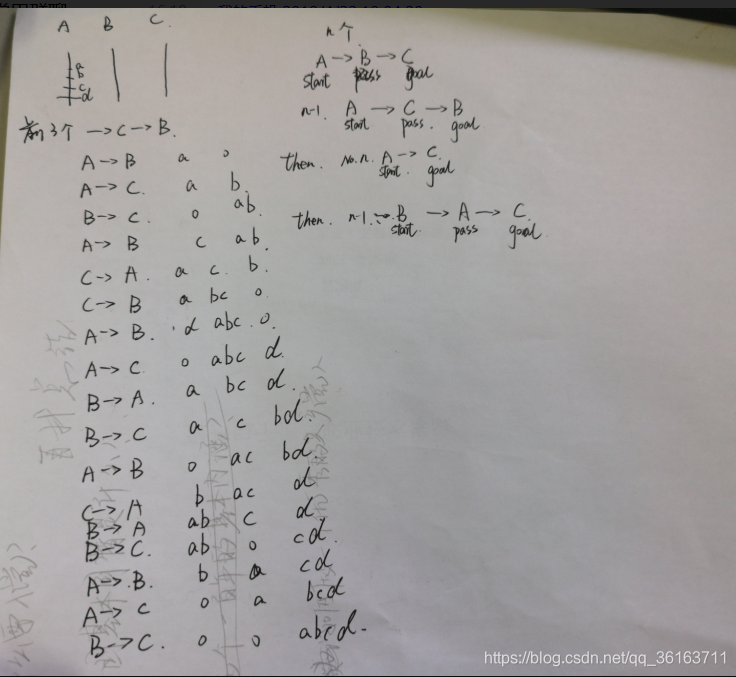 A B C
a
b
c
d
前3个 → C → B.
A → B a 0
A → C. a b.
B → C. 0 ab.
A → B c ab.
C → A. a c. b.
C → B a bc 0
A → B. d abc. 0.
A → C. 0 abc d.
B → A. a bc d.
B → C a c bd.
A → B 0 ac bd.
C → A b ac d
B → A ab c d.
B → C. ab 0 cd.
A → B. b a cd
A → C 0 a bcd
B → C. 0 0 abcd.
n个.
A → B → C
start pass goal
n-1. A → C → B
start pass. goal.
then. No.n. A → C.
start. goal
then. n-1. B → A → C.
start. pass goal.
https://blog.csdn.net/qq_36163711